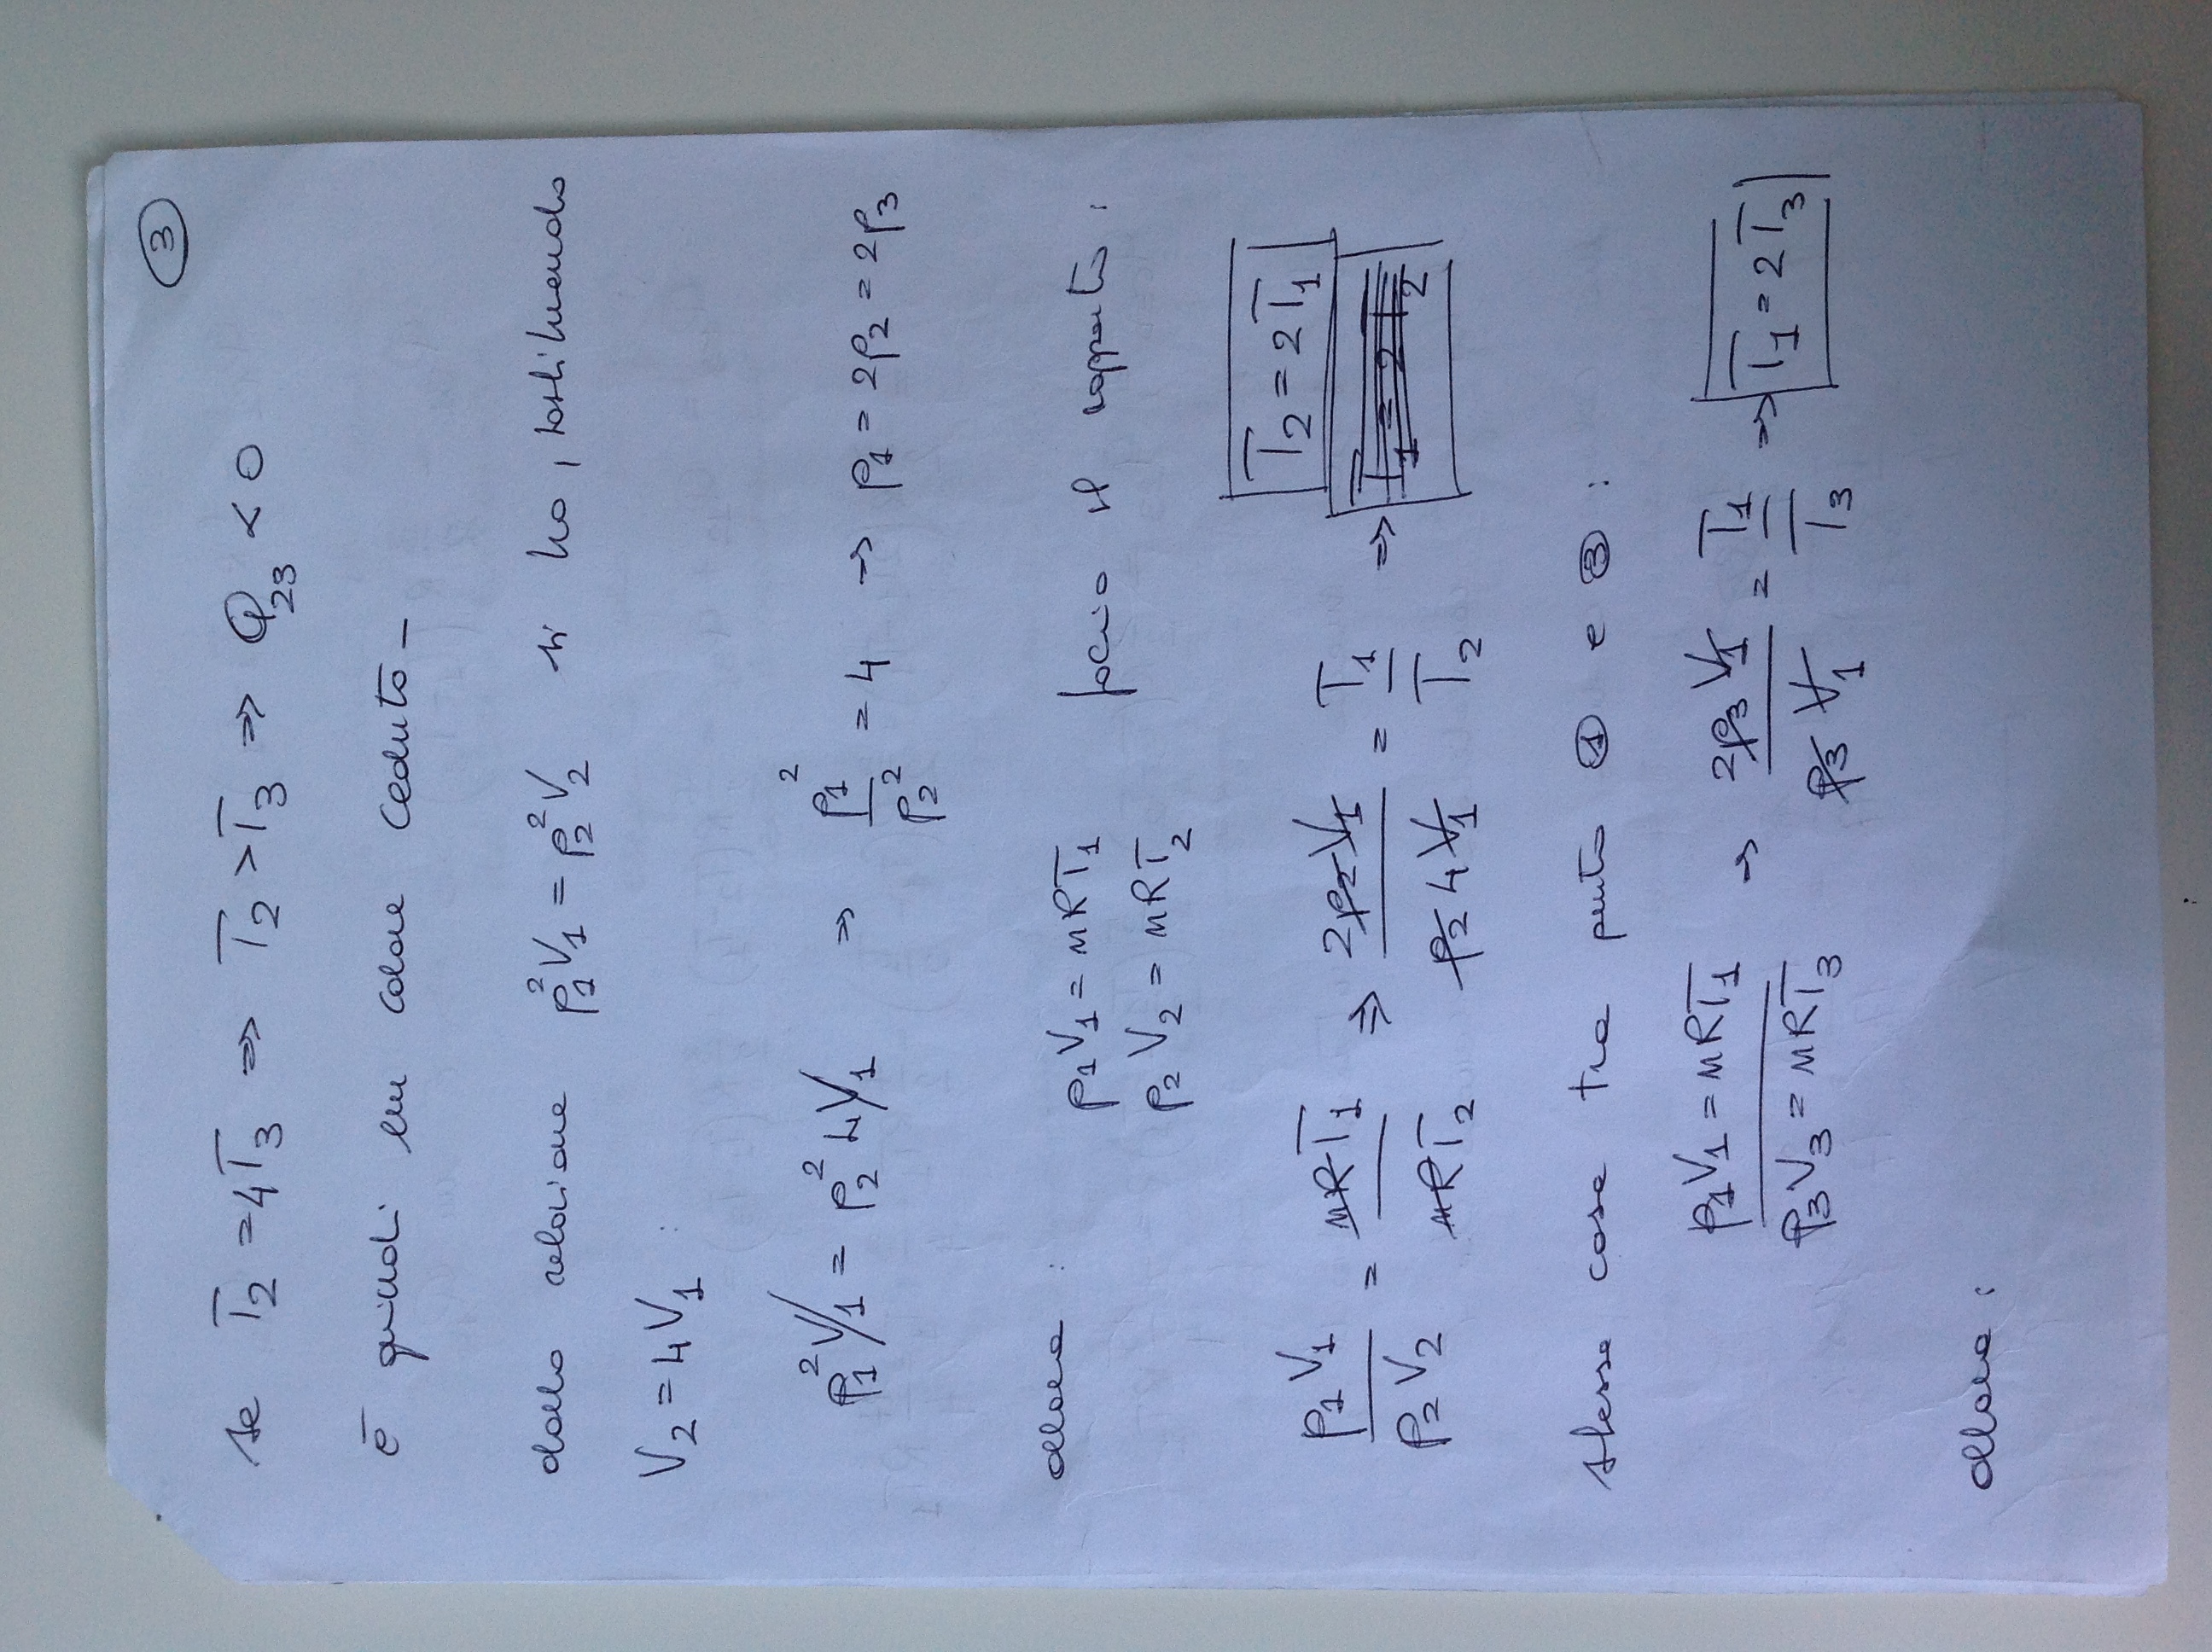 3
se T₂ = 4T₃ ⇒ T₂ > T₃ ⇒ Q₂₃ < 0
è quindi un calore ceduto –
dalla relazione p₁²V₁ = p₂²V₂ si ha, sostituendo
V₂ = 4V₁ :
p₁²V₁ = p₂² 4V₁ ⇒ p₁²/p₂² = 4 ⇒ p₁ = 2p₂ = 2p₃
allora :
p₁V₁ = nRT₁ faccio il rapporto :
p₂V₂ = nRT₂
T₂ = 2T₁
p₁V₁/p₂V₂ = nRT₁/nRT₂ ⇒ 2p₂V₁/p₂4V₁ = T₁/T₂ ⇒ T₁ = 2T₂
stessa cosa tra punto 1 e 3 :
p₁V₁ = nRT₁/p₃V₃ = nRT₃ ⇒ 2p₃V₁/p₃V₁ = T₁/T₃ ⇒ T₁ = 2T₃
allora :